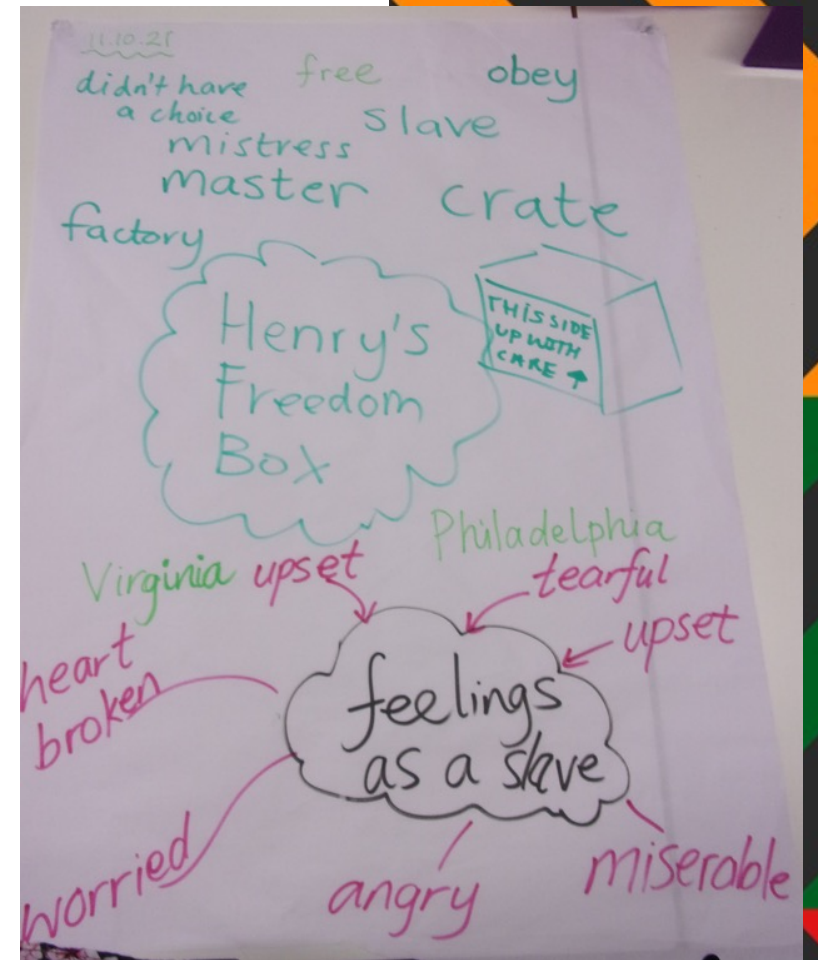 11.10.21
free
obey
didn't have
a choice
slave
mistress
master
crate
factory
Henry's
Freedom
Box
THIS SIDE
UP WITH
CARE
Philadelphia
Virginia
upset
tearful
upset
heart
broken
feelings
as a slave
worried
angry
miserable